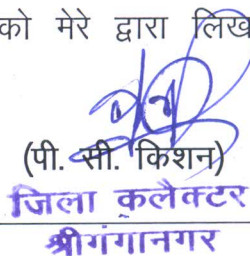 को मेरे द्वारा लिख
(पी. सी. किशन)
जिला कलैक्टर
श्रीगंगानगर